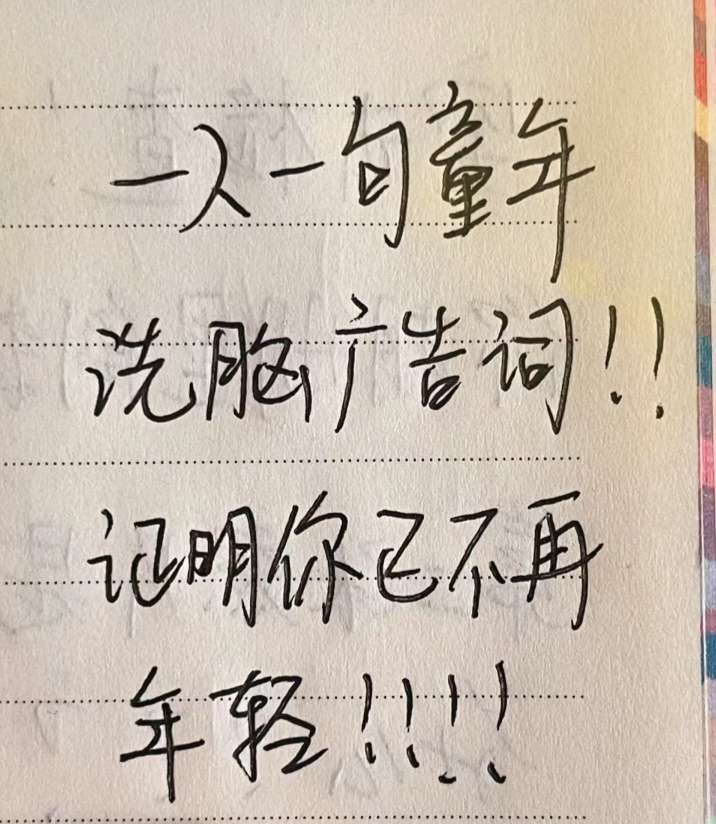 一人一句童年
洗脑广告词!!
证明你已不再
年轻!!!!